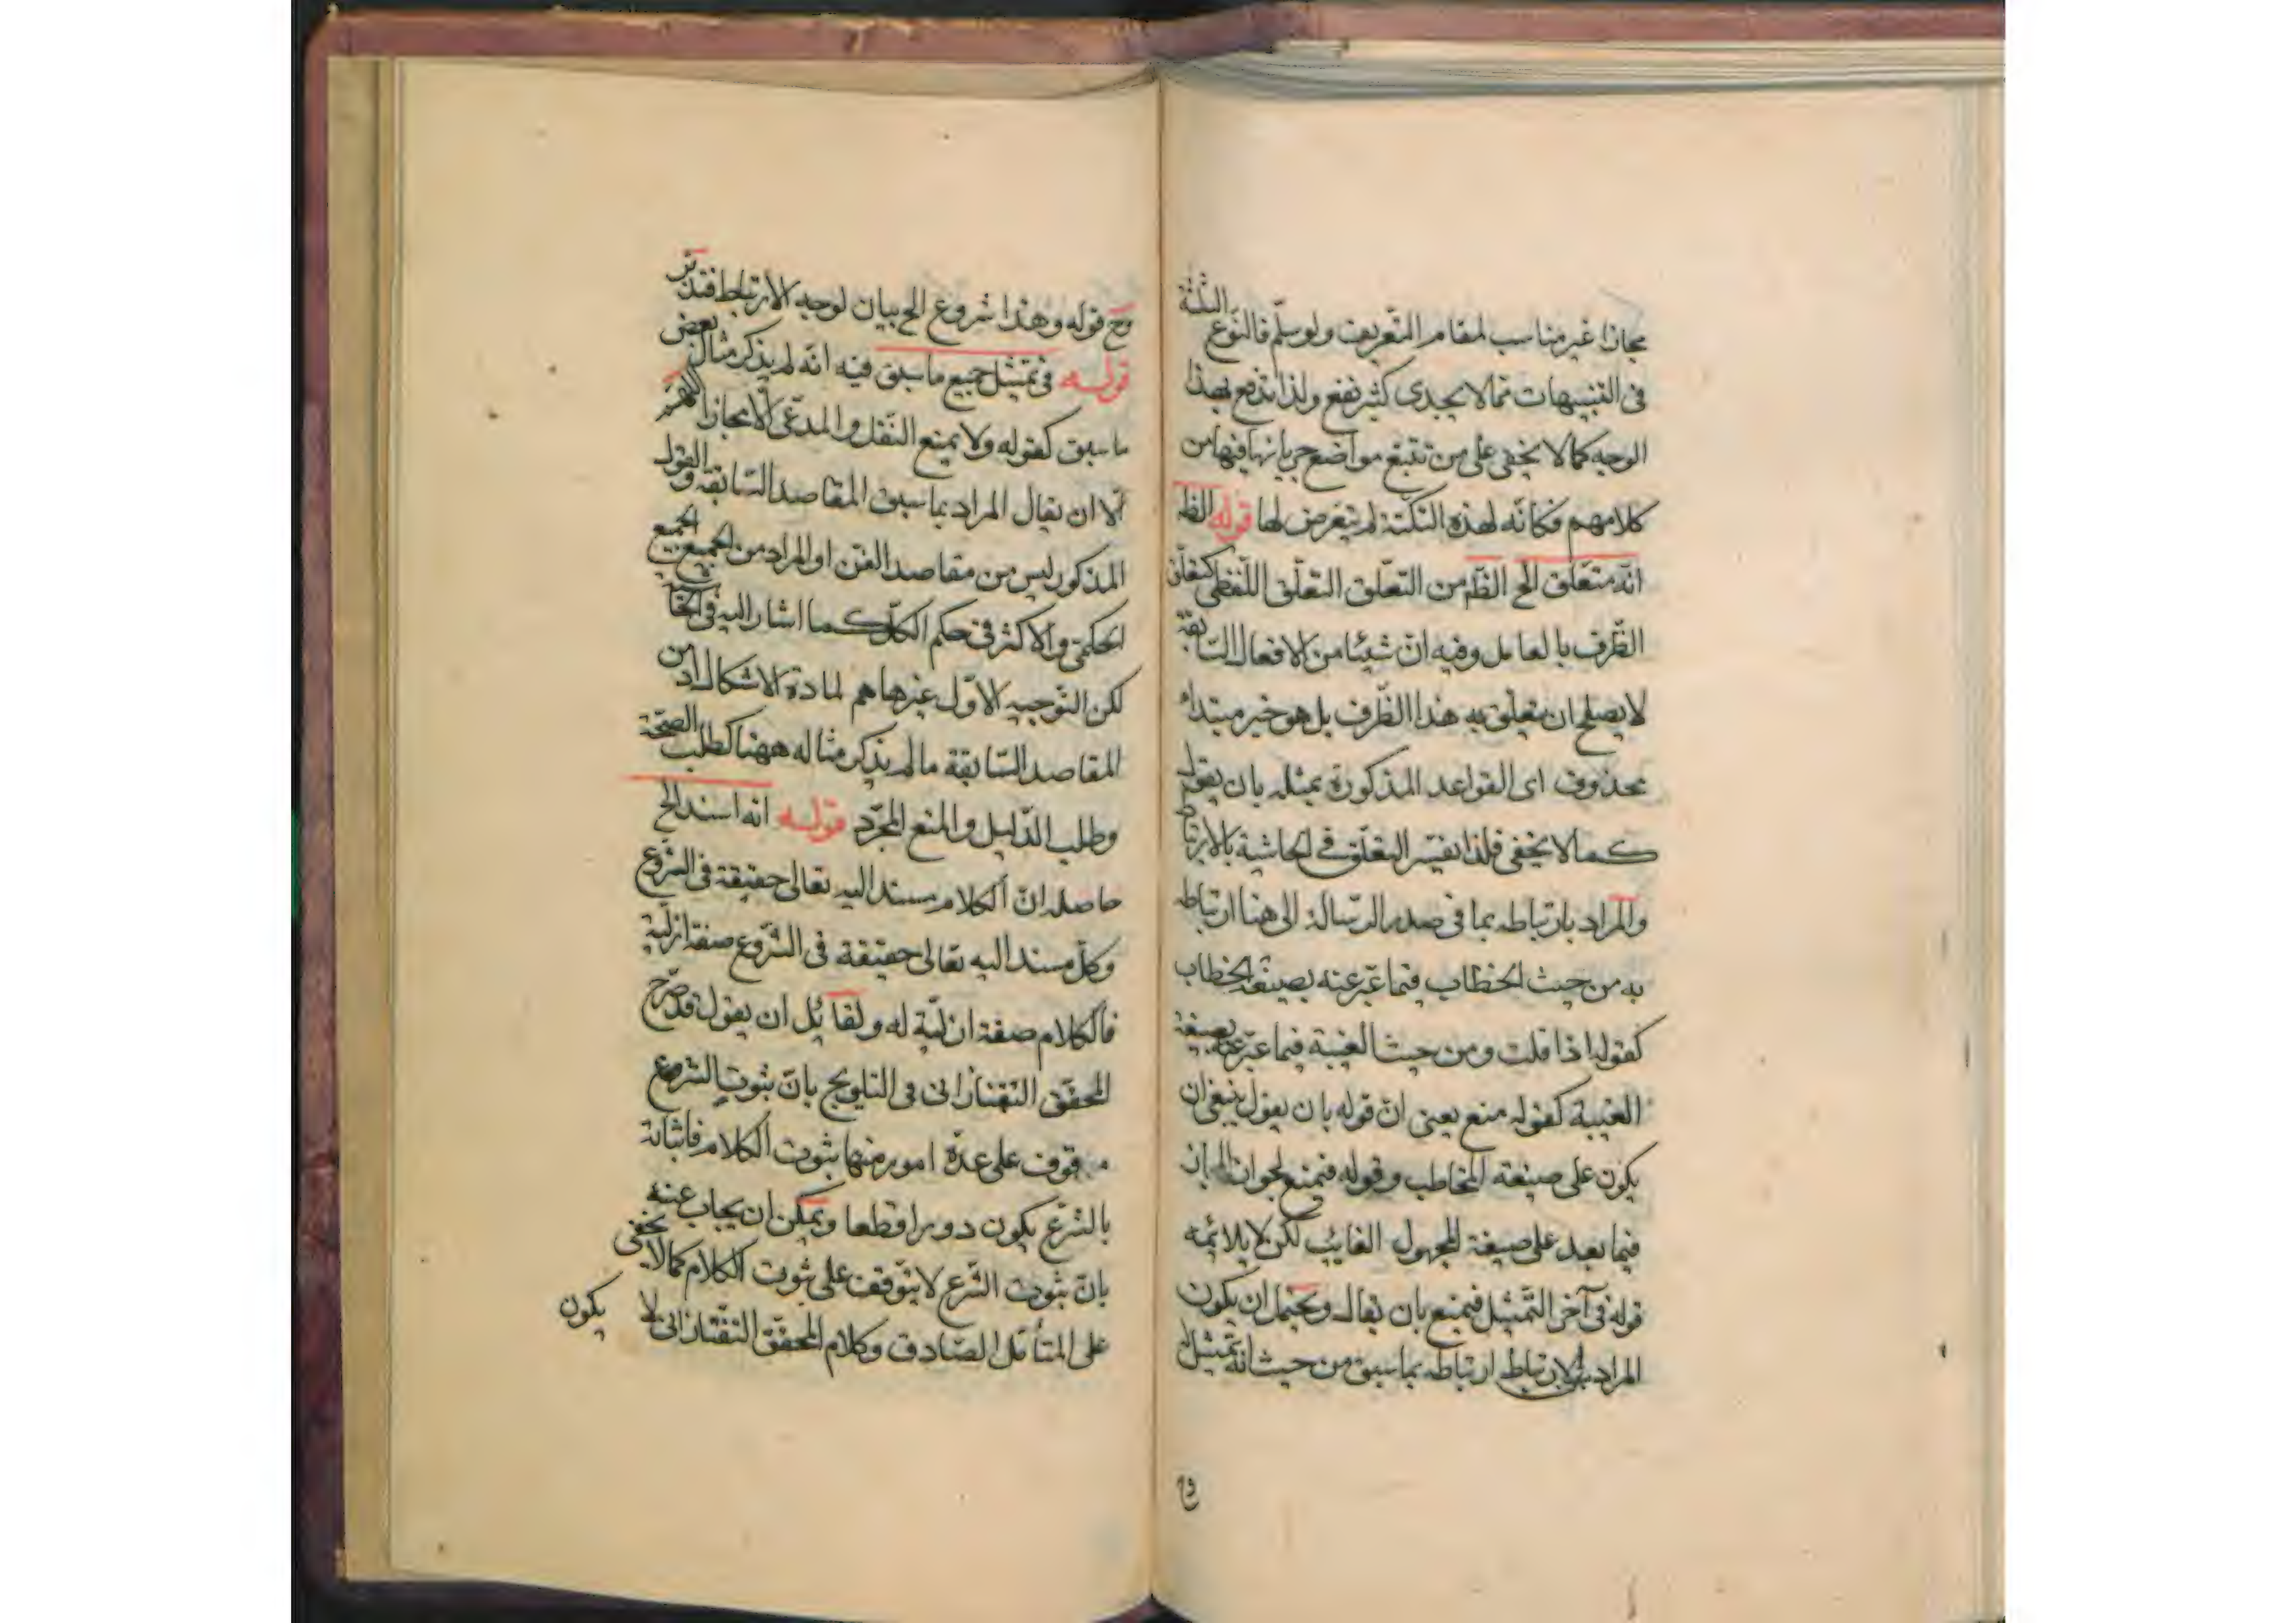 مجازا غير مناسب لمقام التعريف ولو سلّم فالنّوع الثلثة
فى التنبيهات ممّا لا يجدى كثير نفع ولذا تدفع بهذا
الوجه كما لا يخفى على من تتبّع مواضع جريانها فيها من
كلامهم فكانّه لهذه النكتة لم يتعرض لها قوله الظ
انّه متعلّق الخ الظّ من التعلّق التعلّق اللّفظى كتعلّق
الظّرف بالعامل وفيه انّ شيئا من الافعال السّابقة
لا يصلح ان يتعلّق به هذا الظّرف بل هو خبر مبتداء
محذوف اى القواعد المذكورة بمثله بان يقول
كما لا يخفى فلذا يفسّر التعلّق فى الحاشية بالارتباط
والمراد بارتباطه بما فى صدر الرّسالة الى هنا ارتباطه
به من حيث الخطاب فيما عبّر عنه بصيغة الخطاب
كقوله اذا قلت ومن حيث الغيبة فيما عبّر عنه بصيغة
الغيبة كقوله منع يعنى انّ قوله بان يقول ينبغى ان
يكون على صيغة المخاطب وقوله فيمنع لجواز الخ بان
فيما بعد على صيغة المجهول الغايب لكن لا يلائمه
قوله فى آخر التّمثيل فيمنع بان يقال ويحتمل ان يكون
المراد بالارتباط ارتباطه بما سبق من حيث انّه تمثيل له
وح قوله وهذا شروع الخ بيان لوجه الارتباط فتدبّر
قوله فى تمثيل جميع ما سبق فيه انّه لم يذكر مثال بعض
ما سبق كقوله ولا يمنع النّقل والمدّعى الّا مجازا اللّهمّ
الّا ان يقال المراد بما سبق المقاصد السّابقة والقول
المذكور ليس من مقاصد الفن او المراد من الجميع الجميع
الحكمىّ والاكثر فى حكم الكلّ كما اشار اليه فى الحاشية
لكن التّوجيه الاوّل غير حاسم لمادة الاشكال اذ من
المقاصد السّابقة ما لم يذكر مثاله ههنا كطلب الصحّة
وطلب الدّليل والمنع المجرّد قوله انه اسند الخ
حاصله انّ الكلام مسند اليه تعالى حقيقة فى الشّرع
وكلّ مسند اليه تعالى حقيقة فى الشّرع صفة ازليّة
فالكلام صفة ازليّة له ولقائل ان يقول قد صرّح
المحقّق التّفتازانى فى التلويح بانّ ثبوت الشّرع
موقوف على عدّة امور منها ثبوت الكلام فاثباته
بالشّرع يكون دورا قطعا ويمكن ان يجاب عنه
بانّ ثبوت الشّرع لا يتوقف على ثبوت الكلام كما لا يخفى
على المتأمّل الصّادق وكلام المحقّق التفتازانى لا
يكون